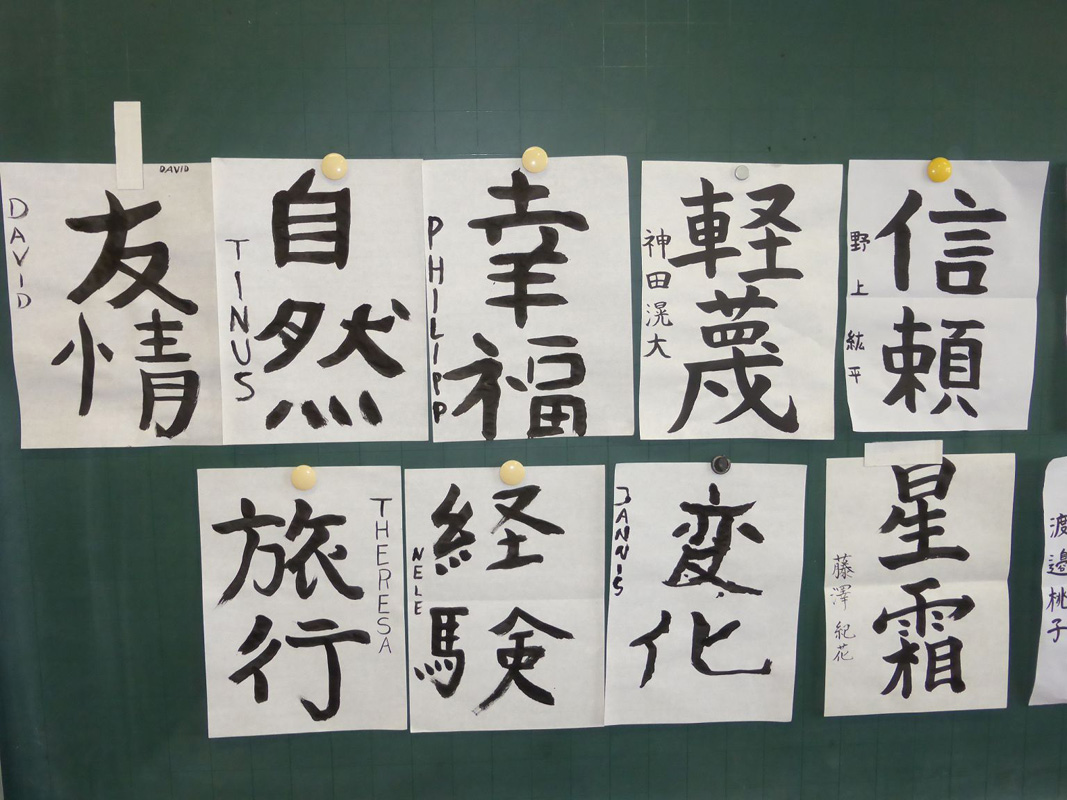 DAVID
DAVID
友情
TINUS
自然
PHILIPP
幸福
神田滉大
軽蔑
野上紘平
信頼
旅行
THERESA
NELE
経験
JANNIS
変化
藤澤紀花
星霜
渡邉桃子